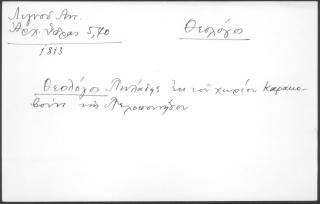 Λιγνού Αν.
Αρχ. Ύδρας 5,40
1813
Θεολόγος
Θεολόγος Πυλάδης εκ του χωρίου Καρακο-
βούνι της Πελοποννήσου